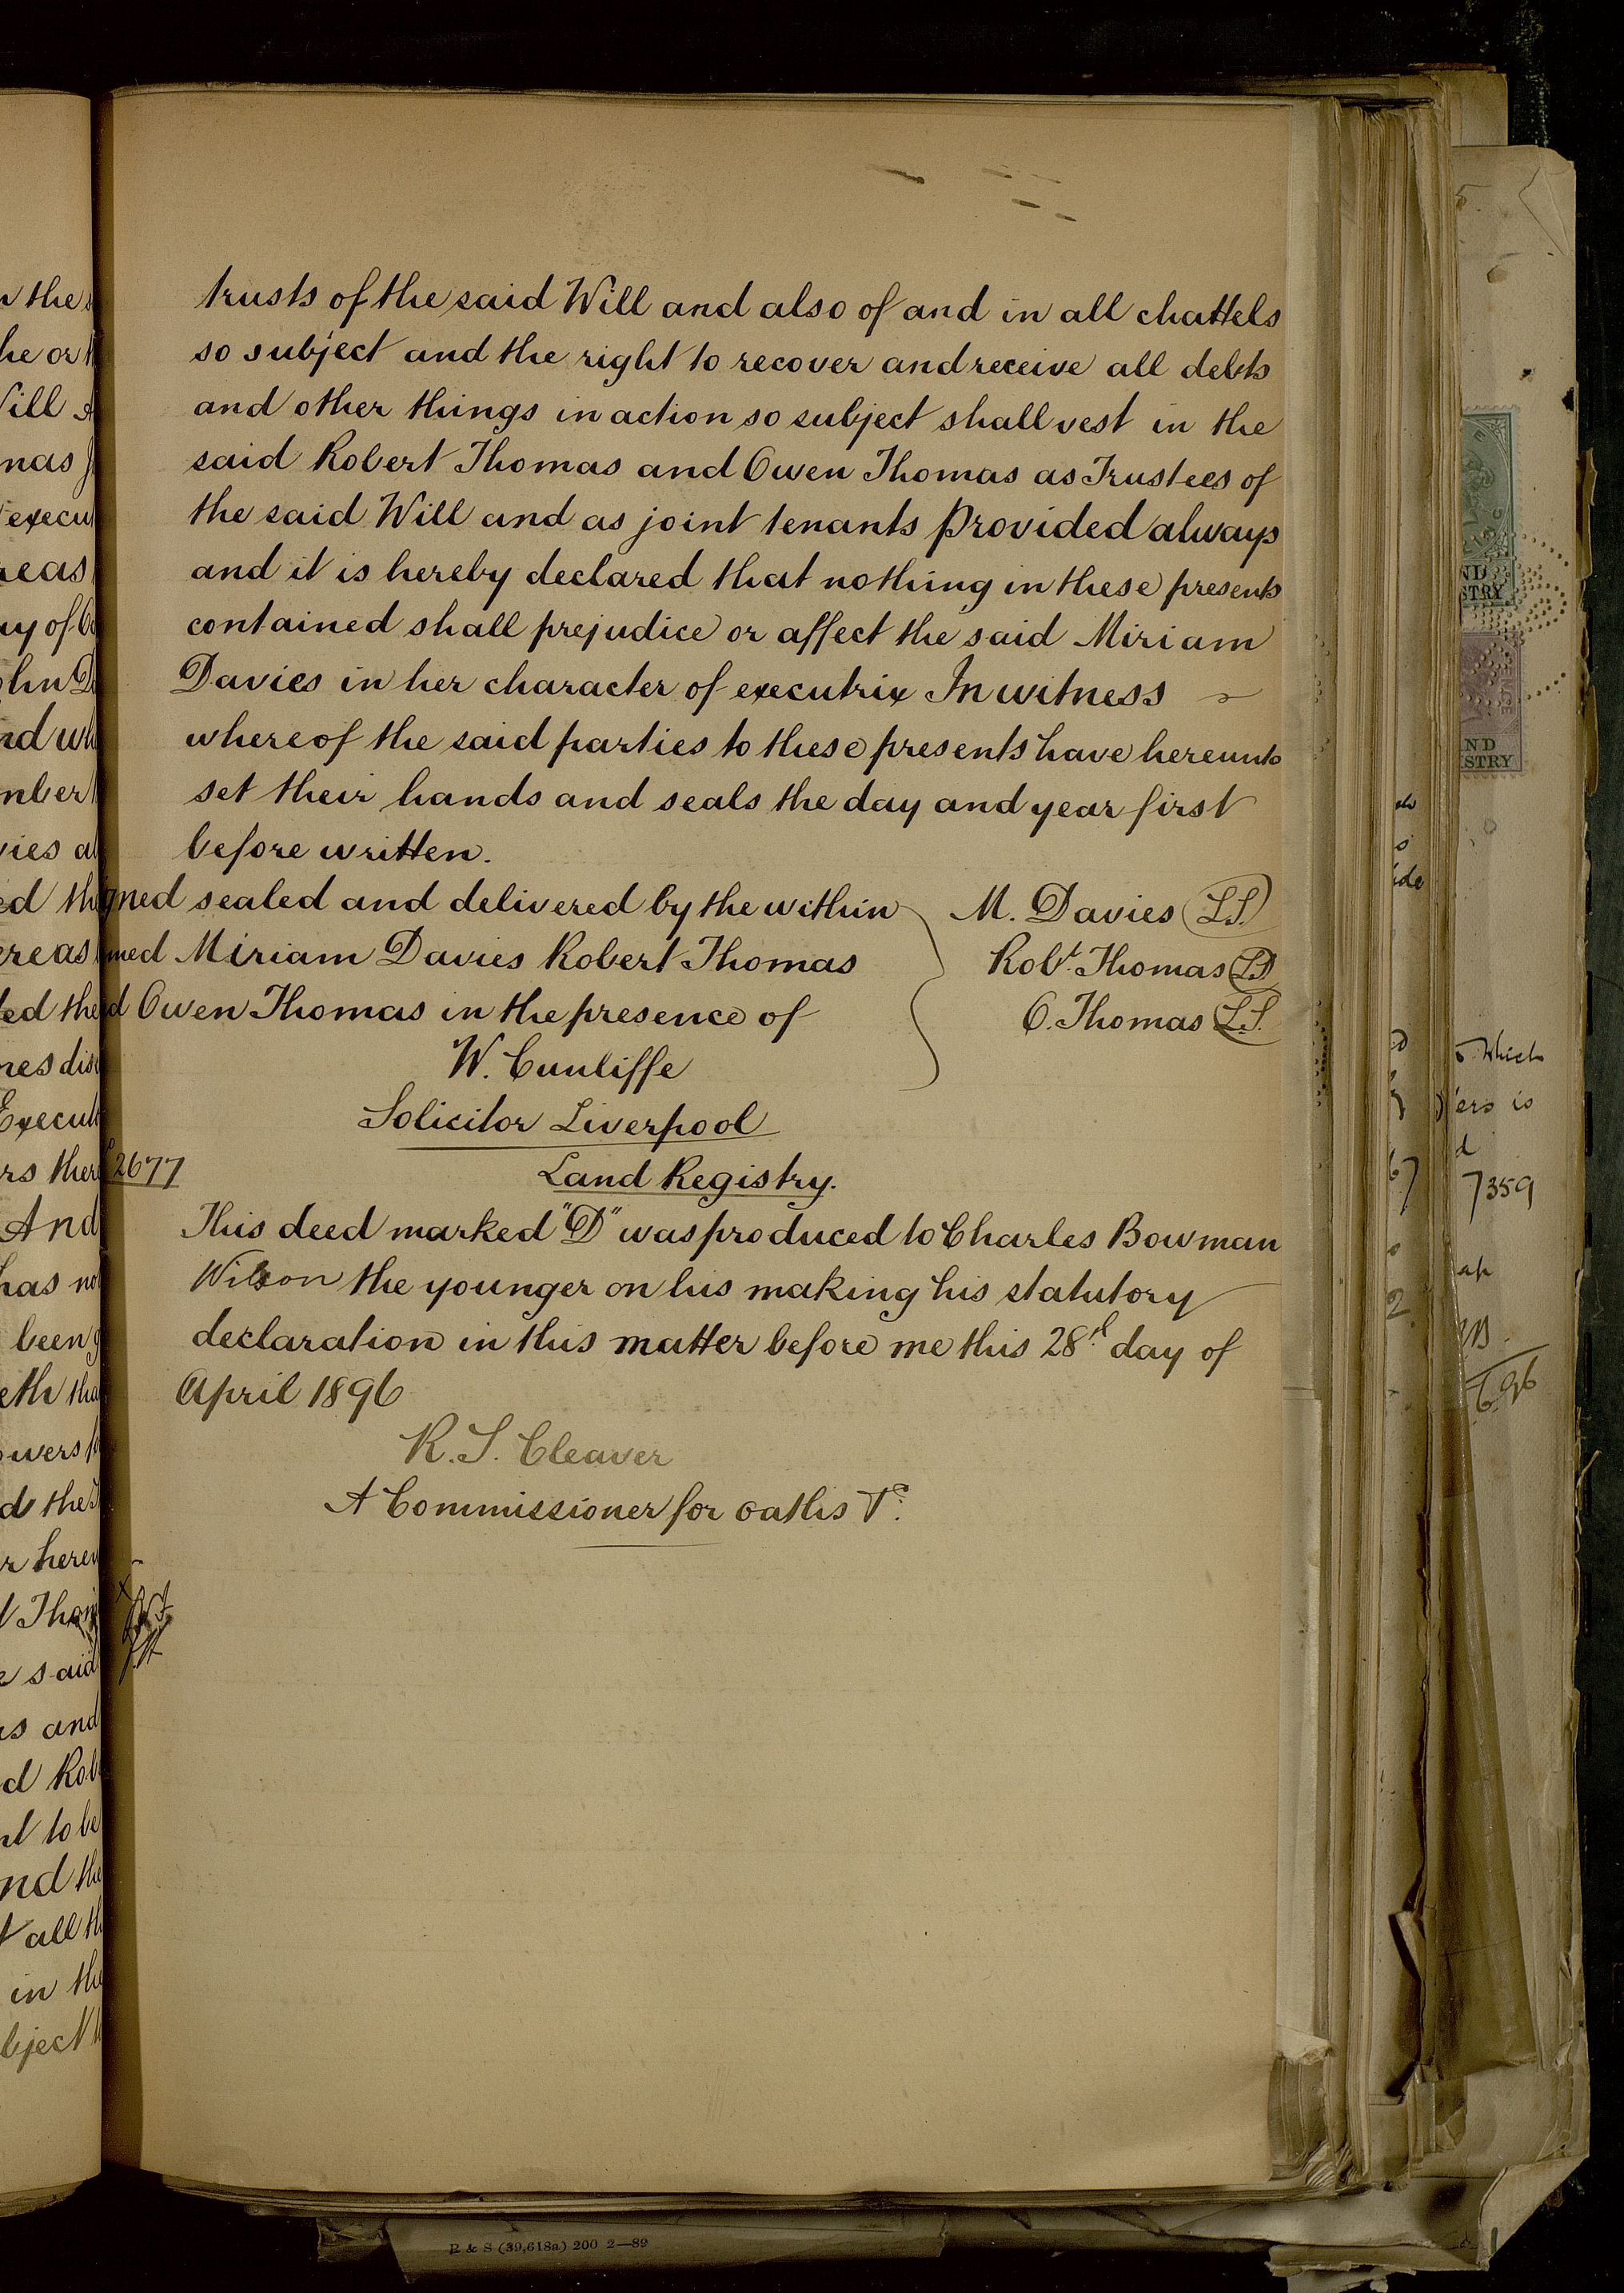 trusts of the said Will and also of and in all chattels
so subject and the right to recover and receive all debts
and other things in action so subject shall vest in the
said Robert Thomas and Owen Thomas as Trustees of
the said Will and as joint tenants Provided always
and it is hereby declared that nothing in these presents
contained shall prejudice or affect the said Miriam
Davies in her character of executrix In witness
whereof the said parties to these presents have hereunto
set their hands and seals the day and year first
before written.
gned sealed and delivered by the within
med Miriam Davies Robert Thomas
d Owen Thomas in the presence of
W. Cunliffe
Solicitor Liverpool
M. Davies L.S.
Robt. Thomas L.S.
O. Thomas L.S.
2677
Land Registry.
This deed marked "D" was produced to Charles Bowman
Wilson the younger on his making his statutory
declaration in this matter before me this 28th day of
April 1896
R. S. Cleaver
A Commissioner for oaths &c.
n the
he or
Will
mas
execu
reas
ay of
nd wh
mber
vies a
ed th
ereas
ted the
mes dis
Execut
rs ther
And
has no
been g
eth tha
owers
d the
r hereu
Thom
e said
rs and
d Rob
nt to be
nd the
t all th
in the
bject
ND
STRY
AND
ISTRY
which
ers is
d
7359
R & S (39,618a) 200 2—89